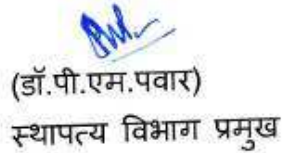 (डॉ.पी.एम.पवार)
स्थापत्य विभाग प्रमुख